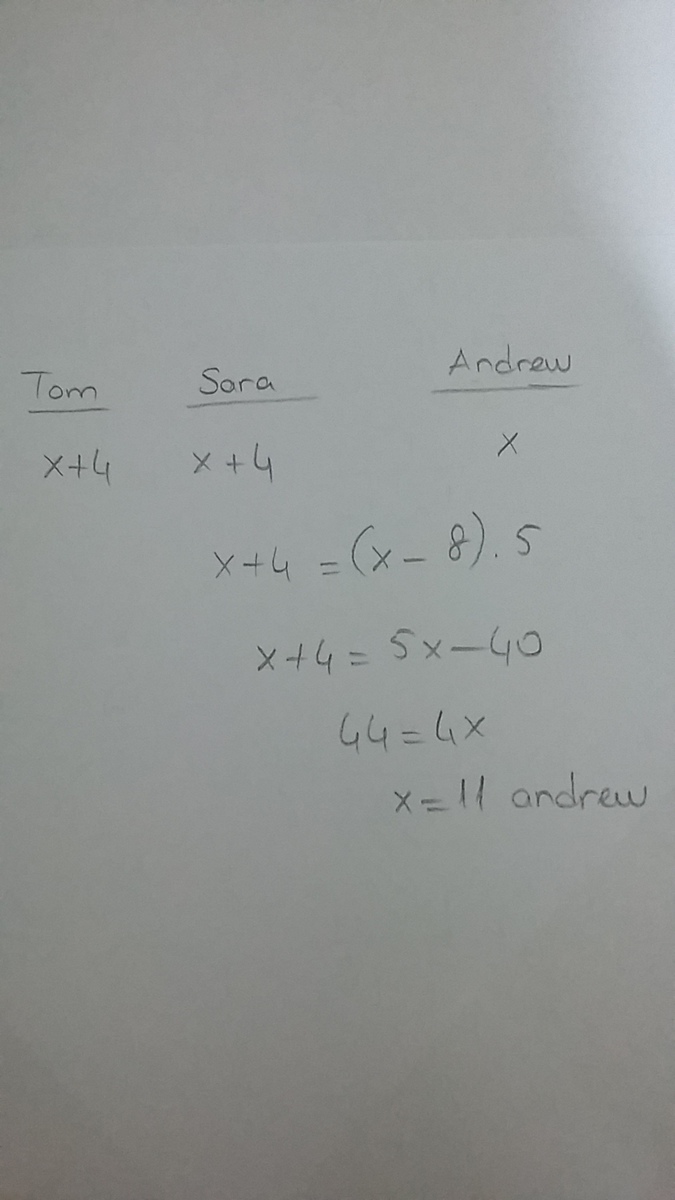 Tom Sara Andrew
x+4 x+4 x
x+4 = (x-8).5
x+4 = 5x-40
44=4x
x=11 andrew